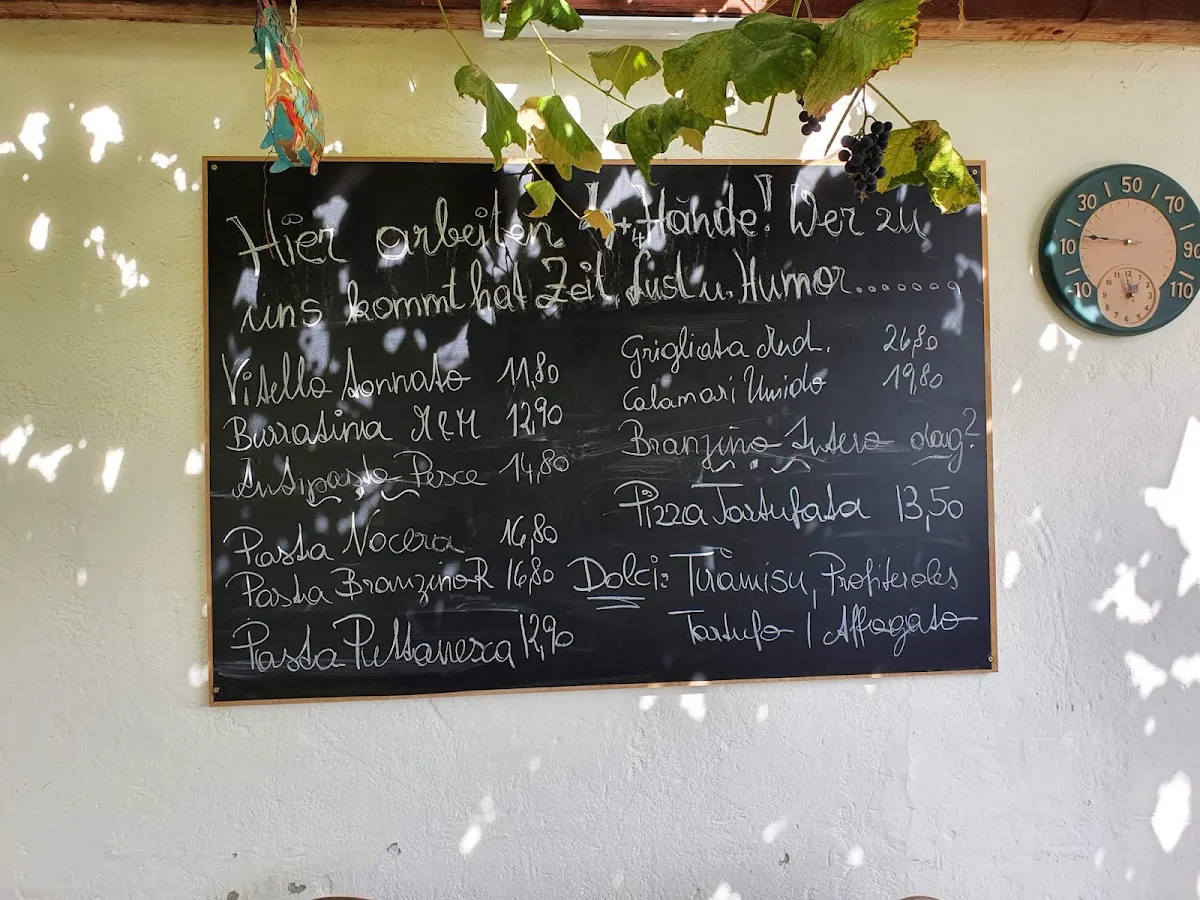 Hier arbeiten 4 Hände! Wer zu
uns kommt hat Zeit, Lust u. Humor.......
Vitello tonnato 11,80
Burratina M&M 12,90
Antipasto Pesce 14,80
Pasta Nocera 16,80
Pasta Branzino R 16,80
Pasta Puttanesca
Grigliata
26,80
Calamari Umido 19,80
Branzino Intero
Pizza Tartufata 13,50
Dolci: Tiramisu, Profiteroles
Tartufo / Affogato
-10 10 30 50 70 90 110
12 2 3 4 5 6 7 8 9